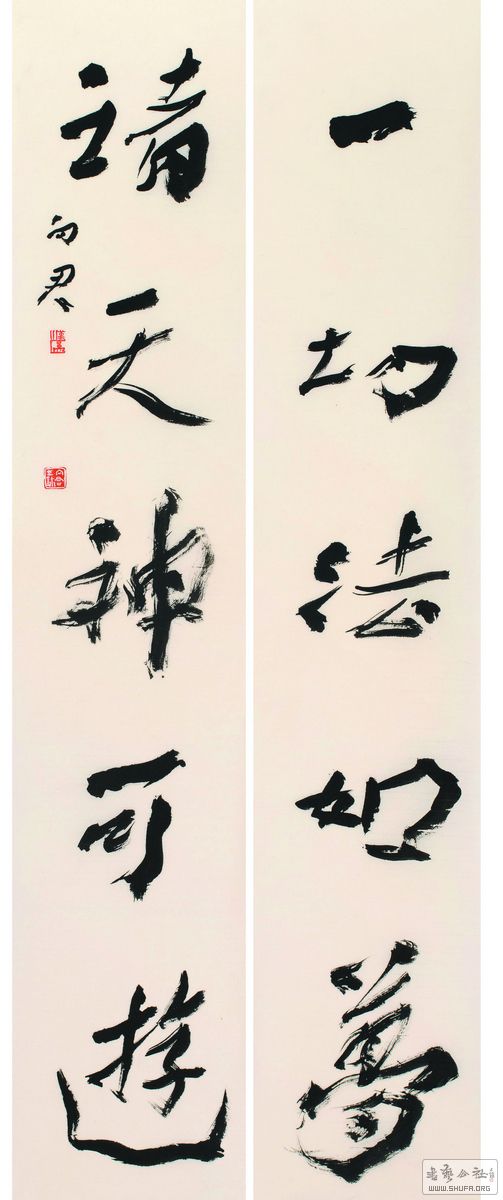 一切法如夢
靖天神可遊
向君
书艺公社
WWW.SHUFA.ORG